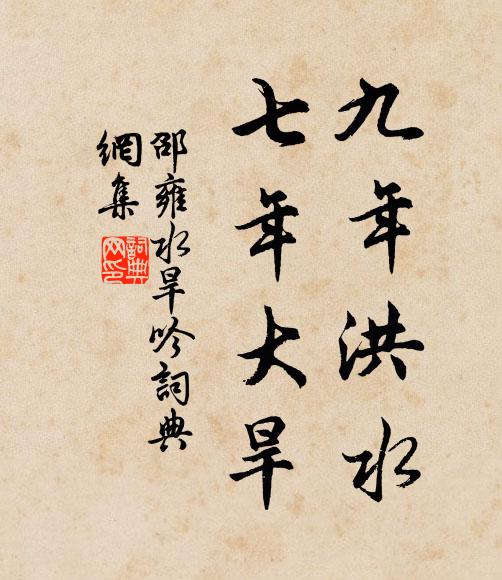 九年洪水
七年大旱
邵雍水旱吟詞典
網集
詞典
网印